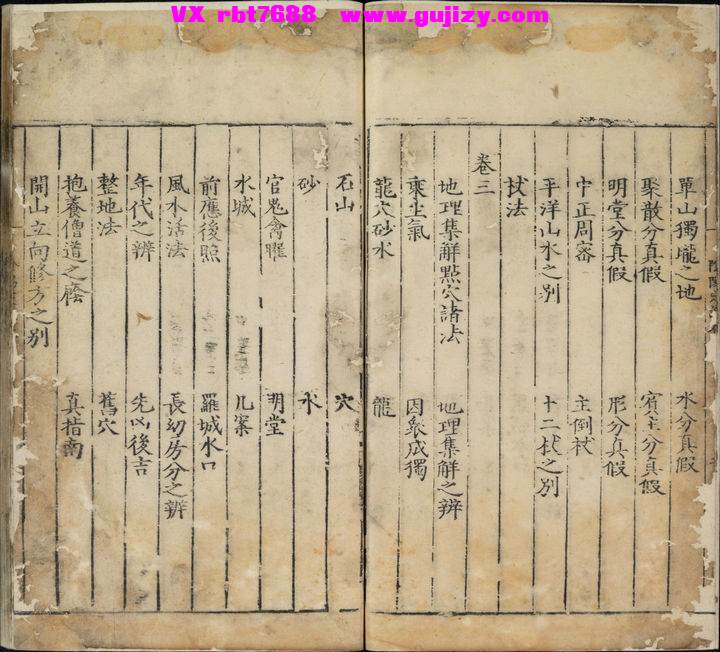 VX rbt7688 www.gujizy.com
單山獨壠之地 水分真假
聚散分真假 賓主分真假
明堂分真假 形分真假
中正周審 主倒杖
平洋山水之別 十二杖之別
杖法
卷三
地理集解點穴諸法 地理集解之辨
乘生氣 因眾成獨
龍穴砂水 龍
石山 穴
砂 水
官鬼禽曜 明堂
水城 几案
前應後照 羅城水口
風水活法 長幼房分之辨
年代之辨 先凶後吉
整地法 舊穴
抱養僧道之廕 真指南
開山立向修方之別